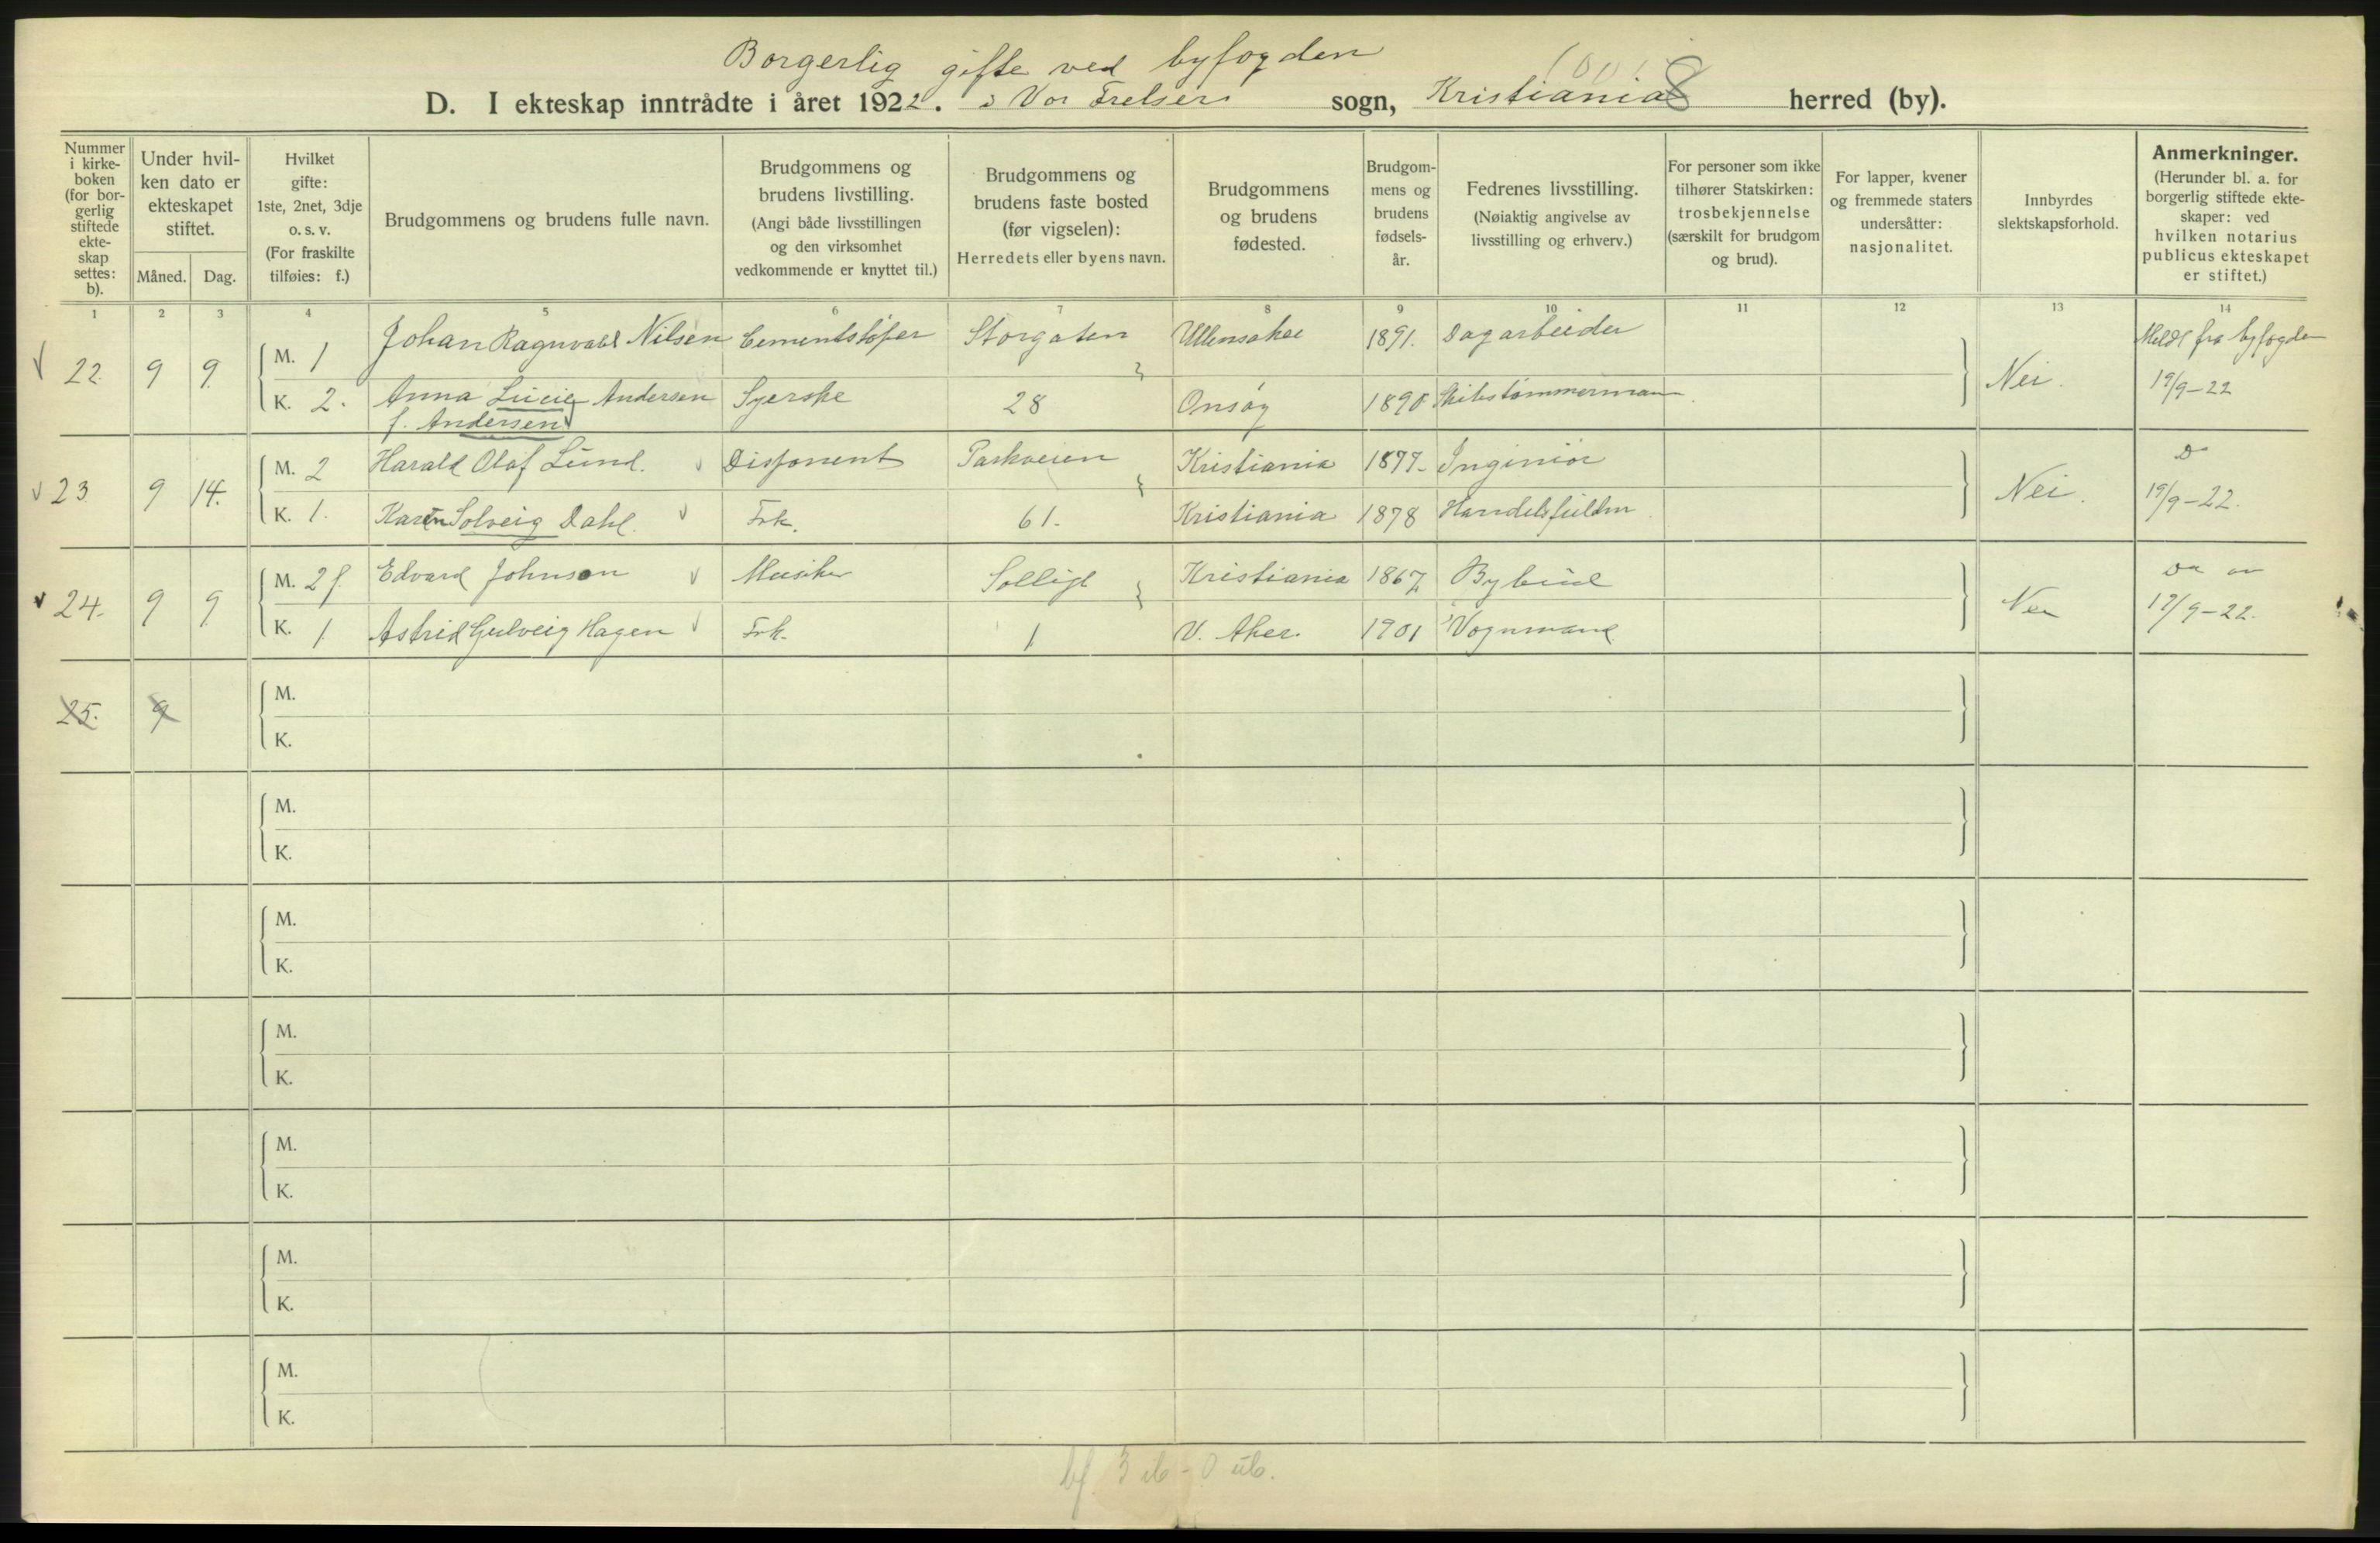 Borgerlig gifte ved byfogden
D. I ekteskap inntrådte i året 1922. i Vor Frelsers sogn, Kristiania herred (by).
8
Nummer i kirke-boken (for bor-gerlig stiftede ekte-skap settes: b).
Under hvil-ken dato er ekteskapet stiftet.
Måned. Dag.
Hvilket gifte: 1ste, 2net, 3dje o. s. v. (For fraskilte tilføies: f.)
Brudgommens og brudens fulle navn.
Brudgommens og brudens livstilling. (Angi både livsstillingen og den virksomhet vedkommende er knyttet til.)
Brudgommens og brudens faste bosted (før vigselen): Herredets eller byens navn.
Brudgommens og brudens fødested.
Brudgom-mens og brudens fødsels-år.
Fedrenes livsstilling. (Nøiaktig angivelse av livsstilling og erhverv.)
For personer som ikke tilhører Statskirken: trosbekjennelse (særskilt for brudgom og brud).
For lapper, kvener og fremmede staters undersåtter: nasjonalitet.
Innbyrdes slektskapsforhold.
Anmerkninger. (Herunder bl. a. for borgerlig stiftede ekte-skaper: ved hvilken notarius publicus ekteskapet er stiftet.)
1 2 3 4 5 6 7 8 9 10 11 12 13 14
22 9 9 M. 1 Johan Ragnvald Nilsen Cementstøper Storgaten Ullensaker 1891. Dagarbeider Nei. Meldt fra byfogden
K. 2. Anna Lucie Andersen Syerske 28 Onsøy 1890 Skibstømmermann 19/9-22
f. Andersen
23 9 14. M. 2 Harald Olaf Lund. Disponent Parkveien Kristiania 1877- Ingeniør Nei. Do
K. 1. Karen Solveig Dahl. Frk. 61. Kristiania 1878 Handelsfuldm. 19/9-22.
24. 9 9 M. 2 f. Edvard Johnson Musiker Solligt Kristiania 1867 Bybud Nei Do
K. 1 Astrid Gulveig Hagen Frk. 1 V. Aker. 1901 Vognmand 19/9-22.
25. 9 M.
K.
M.
K.
M.
K.
M.
K.
M.
K.
M.
K.
M.
K.
bf. 3 ib - 0 ub.